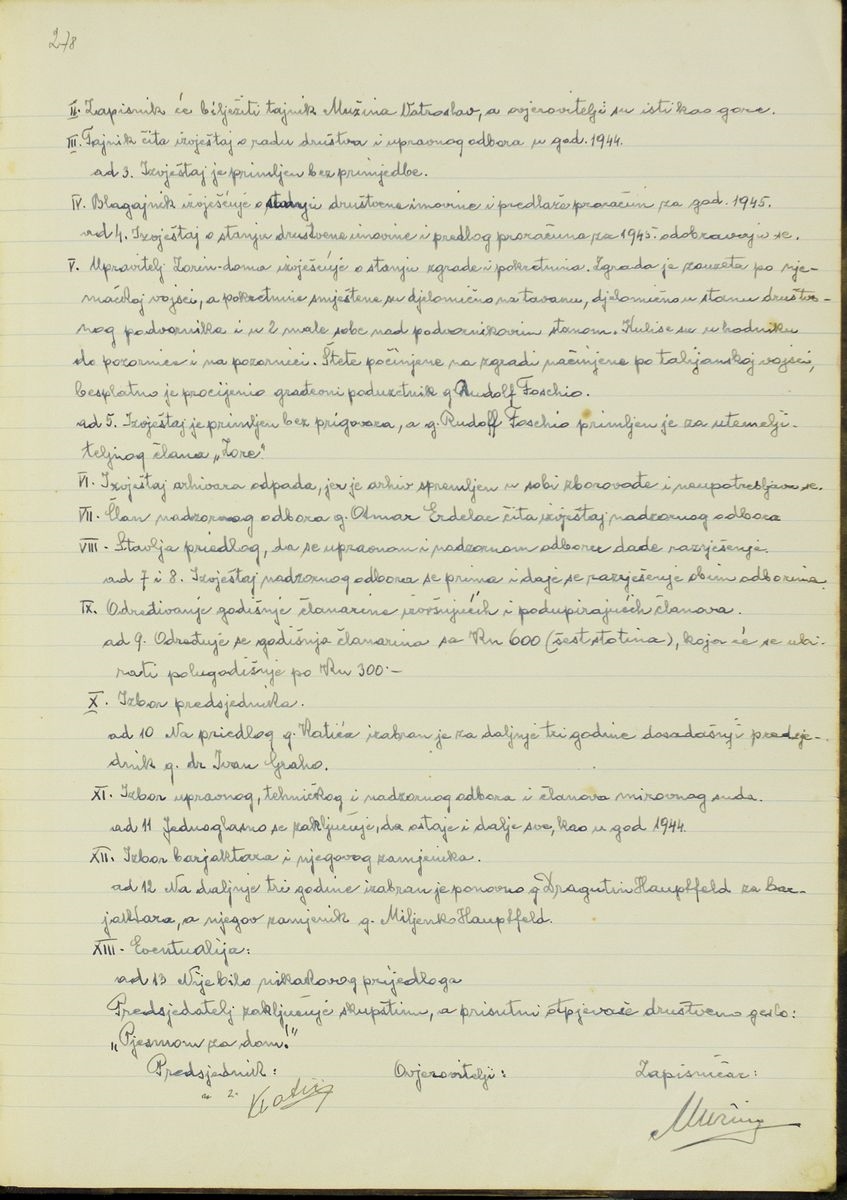 278
II. Zapisnik će bilježiti tajnik Mužina Vatroslav, a ovjerovitelji su isti kao gore.
III. Tajnik čita izvještaj o radu društva i upravnog odbora u god. 1944.
ad 3. Izvještaj je primljen bez primjedbe.
IV. Blagajnik izvješćuje o stanju društvene imovine i predlaže proračun za god. 1945.
ad 4. Izvještaj o stanju društvene imovine i predlog proračuna za 1945. odobravaju se.
V. Upravitelj Zorin-doma izvješćuje o stanju zgrade i pokretnina. Zgrada je zauzeta po nje-
mačkoj vojsci, a pokretnine smještene su djelomično na tavanu, djelomično u stanu društve-
nog podvornika i u 2 male sobe nad podvornikovim stanom. Kulise su u hodniku
do pozornice i na pozornici. Štete počinjene na zgradi načinjene po talijanskoj vojsci,
besplatno je procijenio građevni poduzetnik g. Rudolf Foschio.
ad 5. Izvještaj je primljen bez prigovora, a g. Rudolf Foschio primljen je za utemelji-
teljnog člana „Zore".
VI. Izvještaj arhivara odpada, jer je arhiv spremljen u sobi zborovođe i neupotrebljava se.
VII. Član nadzornog odbora g. Otmar Erdelac čita izvještaj nadzornog odbora
VIII. Stavlja priedlog, da se upravnom i nadzornom odboru dade razrješenje.
ad 7 i 8. Izvještaj nadzornog odbora se prima i daje se razrješenje obim odborima.
IX. Određivanje godišnje članarine izvršujućih i podupirajućih članova.
ad 9. Određuje se godišnja članarina sa Kn 600 (šest stotina), koja će se ubi-
rati polugodišnje po Kn 300.-
X. Izbor predsjednika.
ad 10 Na priedlog g. Katića izabran je za daljnje tri godine dosadašnji predsje-
dnik g. dr Ivan Graho.
XI. Izbor upravnog, tehničkog i nadzornog odbora i članova mirovnog suda.
ad 11 Jednoglasno se zaključuje, da ostaje i dalje sve, kao u god 1944.
XII. Izbor barjaktara i njegovog zamjenika.
ad 12 Na daljnje tri godine izabran je ponovno g Dragutin Hauptfeld za bar-
jaktara, a njegov zamjenik g. Miljenko Hauptfeld.
XIII. Eventualija:
ad 13 Nije bilo nikakovog prijedloga
Predsjedatelj zaključuje skupštinu, a prisutni otpjevaše društveno geslo:
„Pjesmom za dom!"
Predsjednik: Ovjerovitelji: Zapisničar:
Katić
Mužina